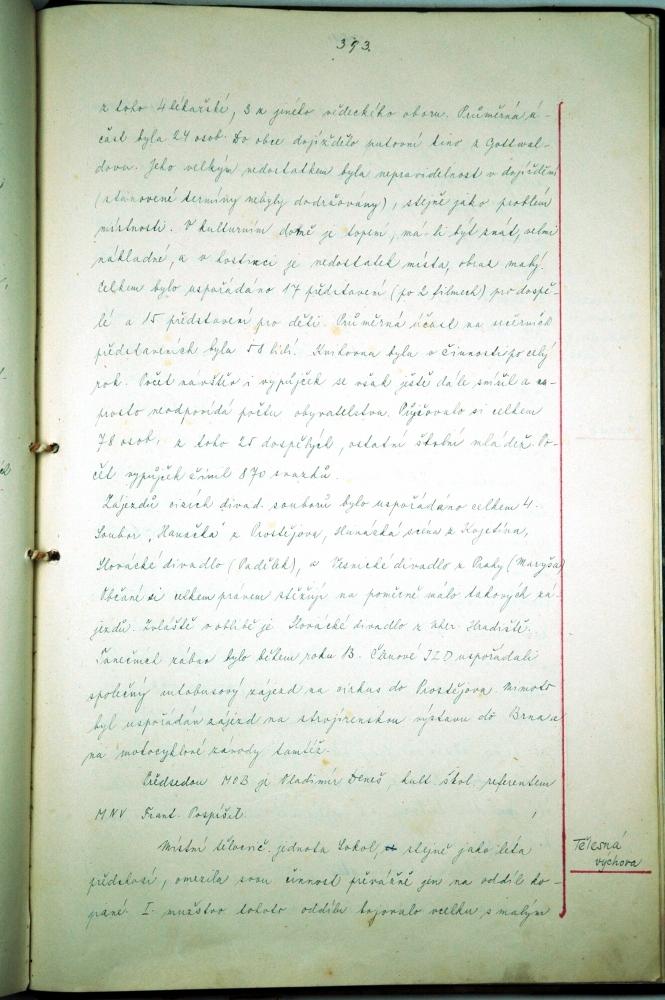 393.
z toho 4 lékařské, 3 z jiného vědeckého oboru. Průměrná ú-
čast byla 24 osob. Do obce dojíždělo putovní kino z Gottwal-
dova. Jeho velkým nedostatkem byla nepravidelnost v dojíždění
(stanovené termíny nebyly dodržovány), stejně jako problém
místnosti. V kulturním domě je topení, má-li být znát, velmi
nákladné, a v hostinci je nedostatek místa, obraz malý.
Celkem bylo uspořádáno 17 představení (po 2 filmech) pro dospě-
lé a 15 představení pro děti. Průměrná účast na večerních
představeních byla 58 lidí. Knihovna byla v činnosti po celý
rok. Počet návštěv i výpůjček se však ještě dále snížil a na-
prosto neodpovídá počtu obyvatelstva. Půjčovalo si celkem
78 osob, z toho 25 dospělých, ostatní školní mládež. Po-
čet výpůjček činil 870 svazků.
Zájezdů cizích divad. souborů bylo uspořádáno celkem 4.
Soubor „Hanačka" z Prostějova, Hanácká scéna z Kojetína,
Slovácké divadlo (Pasřílek), a Vesnické divadlo z Prahy (Maryša)
Občané si celkem právem stěžují na poměrně málo takových zá-
jezdů. Zvláště v oblibě je Slovácké divadlo z Uher. Hradiště.
Tanečních zábav bylo během roku 13. Členové JZD uspořádali
společný autobusový zájezd na cirkus do Prostějova. Mimoto
byl uspořádán zájezd na strojírenskou výstavu do Brna a
na motocyklové závody tamtéž.
Předsedou MOB je Vladimír Beneš, kult. škol. referentem
MNV Frant. Pospíšil.
Místní tělocvič. jednota Sokol, stejně jako léta
Tělesná
výchova
předchozí, omezila svou činnost převážně jen na oddíl ko-
pané. I. mužstvo tohoto oddílu bojovalo vcelku s malým